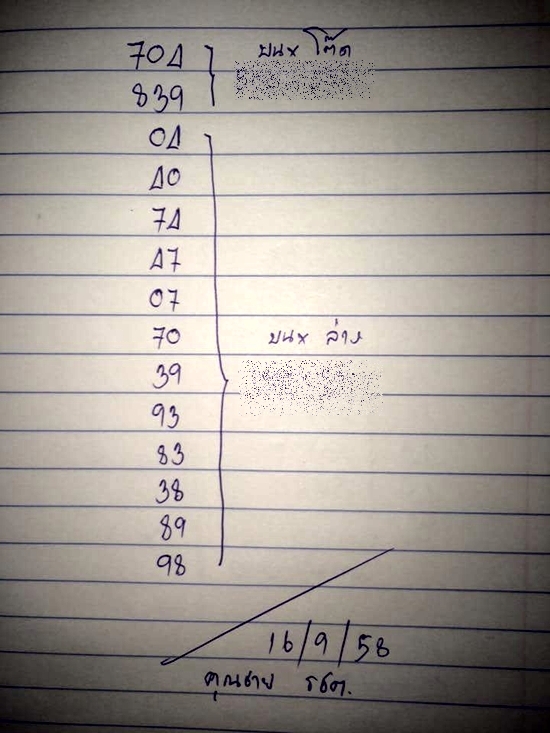 704 บน x โต๊ด
839
04
40
74
47
07
70 บน x ล่าง
39
93
83
38
89
98
16/9/58
คุณชาย รชต.